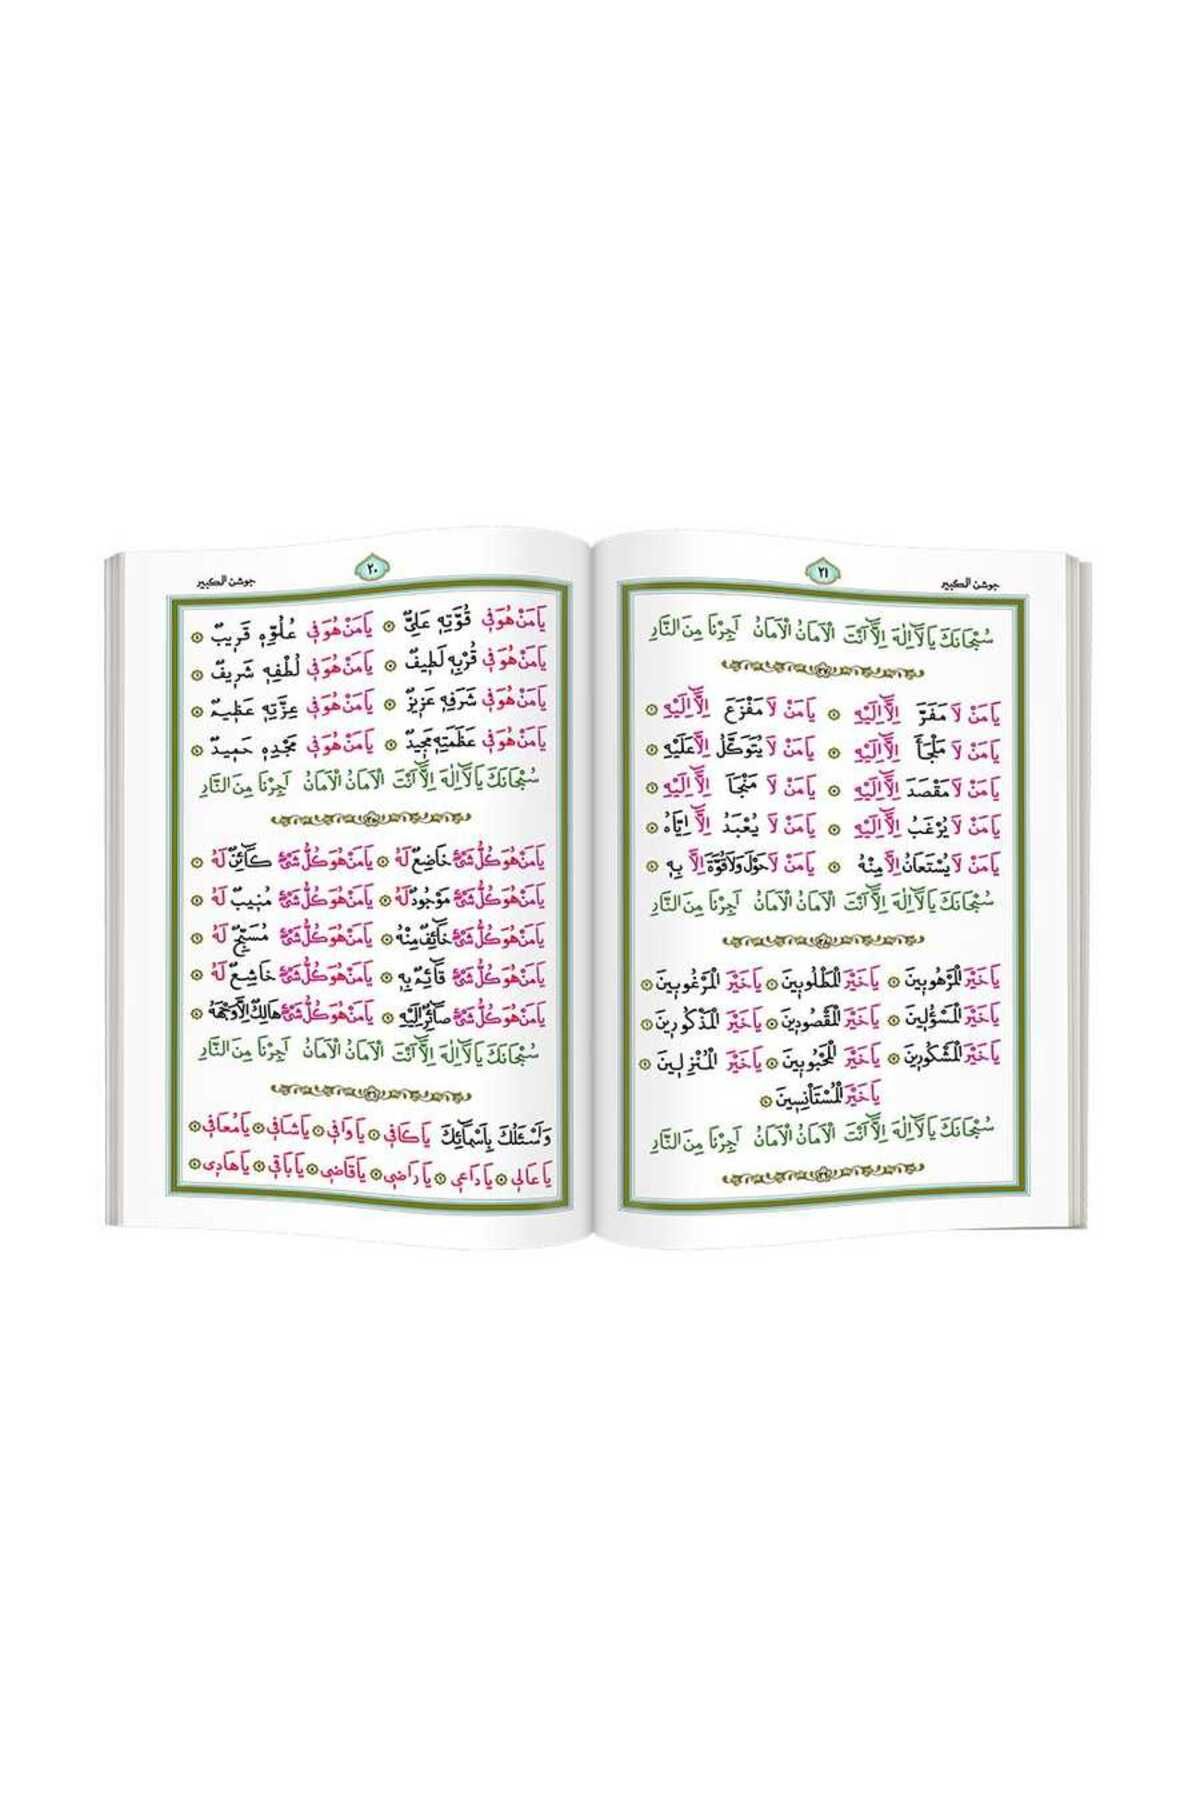 جوشن الكبير
٢٠
يَا مَنْ هُوَ فِي قُوَّتِهِ عَلِيٌّ يَا مَنْ هُوَ فِي عُلُوِّهِ قَرِيبٌ
يَا مَنْ هُوَ فِي قُرْبِهِ لَطِيفٌ يَا مَنْ هُوَ فِي لُطْفِهِ شَرِيفٌ
يَا مَنْ هُوَ فِي شَرَفِهِ عَزِيزٌ يَا مَنْ هُوَ فِي عِزَّتِهِ عَظِيمٌ
يَا مَنْ هُوَ فِي عَظَمَتِهِ مَجِيدٌ يَا مَنْ هُوَ فِي مَجْدِهِ حَمِيدٌ
سُبْحَانَكَ يَا لَا اِلٰهَ اِلَّا اَنْتَ الْاَمَانُ الْاَمَانُ اَجِرْنَا مِنَ النَّارِ
يَا مَنْ هُوَ كُلُّ شَيْءٍ خَاضِعٌ لَهُ يَا مَنْ هُوَ كُلُّ شَيْءٍ كَائِنٌ لَهُ
يَا مَنْ هُوَ كُلُّ شَيْءٍ مَوْجُودٌ لَهُ يَا مَنْ هُوَ كُلُّ شَيْءٍ مُنِيبٌ لَهُ
يَا مَنْ هُوَ كُلُّ شَيْءٍ خَائِفٌ مِنْهُ يَا مَنْ هُوَ كُلُّ شَيْءٍ مُسَبِّحٌ لَهُ
يَا مَنْ هُوَ كُلُّ شَيْءٍ قَائِمٌ بِهِ يَا مَنْ هُوَ كُلُّ شَيْءٍ خَاشِعٌ لَهُ
يَا مَنْ هُوَ كُلُّ شَيْءٍ صَائِرٌ اِلَيْهِ يَا مَنْ هُوَ كُلُّ شَيْءٍ هَالِكٌ اِلَّا وَجْهَهُ
سُبْحَانَكَ يَا لَا اِلٰهَ اِلَّا اَنْتَ الْاَمَانُ الْاَمَانُ اَجِرْنَا مِنَ النَّارِ
وَنَسْئَلُكَ بِاَسْمَائِكَ يَا كَافِي يَا وَافِي يَا شَافِي يَا مُعَافِي
يَا عَالِي يَا دَاعِي يَا رَاضِي يَا قَاضِي يَا بَاقِي يَا هَادِي
جوشن الكبير
٢١
سُبْحَانَكَ يَا لَا اِلٰهَ اِلَّا اَنْتَ الْاَمَانُ الْاَمَانُ اَجِرْنَا مِنَ النَّارِ
يَا مَنْ لَا مَفَرَّ اِلَّا اِلَيْهِ يَا مَنْ لَا مَفْزَعَ اِلَّا اِلَيْهِ
يَا مَنْ لَا مَلْجَأَ اِلَّا اِلَيْهِ يَا مَنْ لَا يُتَوَكَّلُ اِلَّا عَلَيْهِ
يَا مَنْ لَا مَقْصَدَ اِلَّا اِلَيْهِ يَا مَنْ لَا مَنْجَاَ اِلَّا اِلَيْهِ
يَا مَنْ لَا يُرْغَبُ اِلَّا اِلَيْهِ يَا مَنْ لَا يُعْبَدُ اِلَّا اِيَّاهُ
يَا مَنْ لَا يُسْتَعَانُ اِلَّا مِنْهُ يَا مَنْ لَا حَوْلَ وَلَا قُوَّةَ اِلَّا بِهِ
سُبْحَانَكَ يَا لَا اِلٰهَ اِلَّا اَنْتَ الْاَمَانُ الْاَمَانُ اَجِرْنَا مِنَ النَّارِ
يَا خَيْرَ الْمَرْهُوبِينَ يَا خَيْرَ الْمَطْلُوبِينَ يَا خَيْرَ الْمَرْغُوبِينَ
يَا خَيْرَ الْمَسْؤُلِينَ يَا خَيْرَ الْمَقْصُودِينَ يَا خَيْرَ الْمَذْكُورِينَ
يَا خَيْرَ الْمَشْكُورِينَ يَا خَيْرَ الْمَحْبُوبِينَ يَا خَيْرَ الْمُنْزِلِينَ
يَا خَيْرَ الْمُسْتَاْنِسِينَ
سُبْحَانَكَ يَا لَا اِلٰهَ اِلَّا اَنْتَ الْاَمَانُ الْاَمَانُ اَجِرْنَا مِنَ النَّارِ